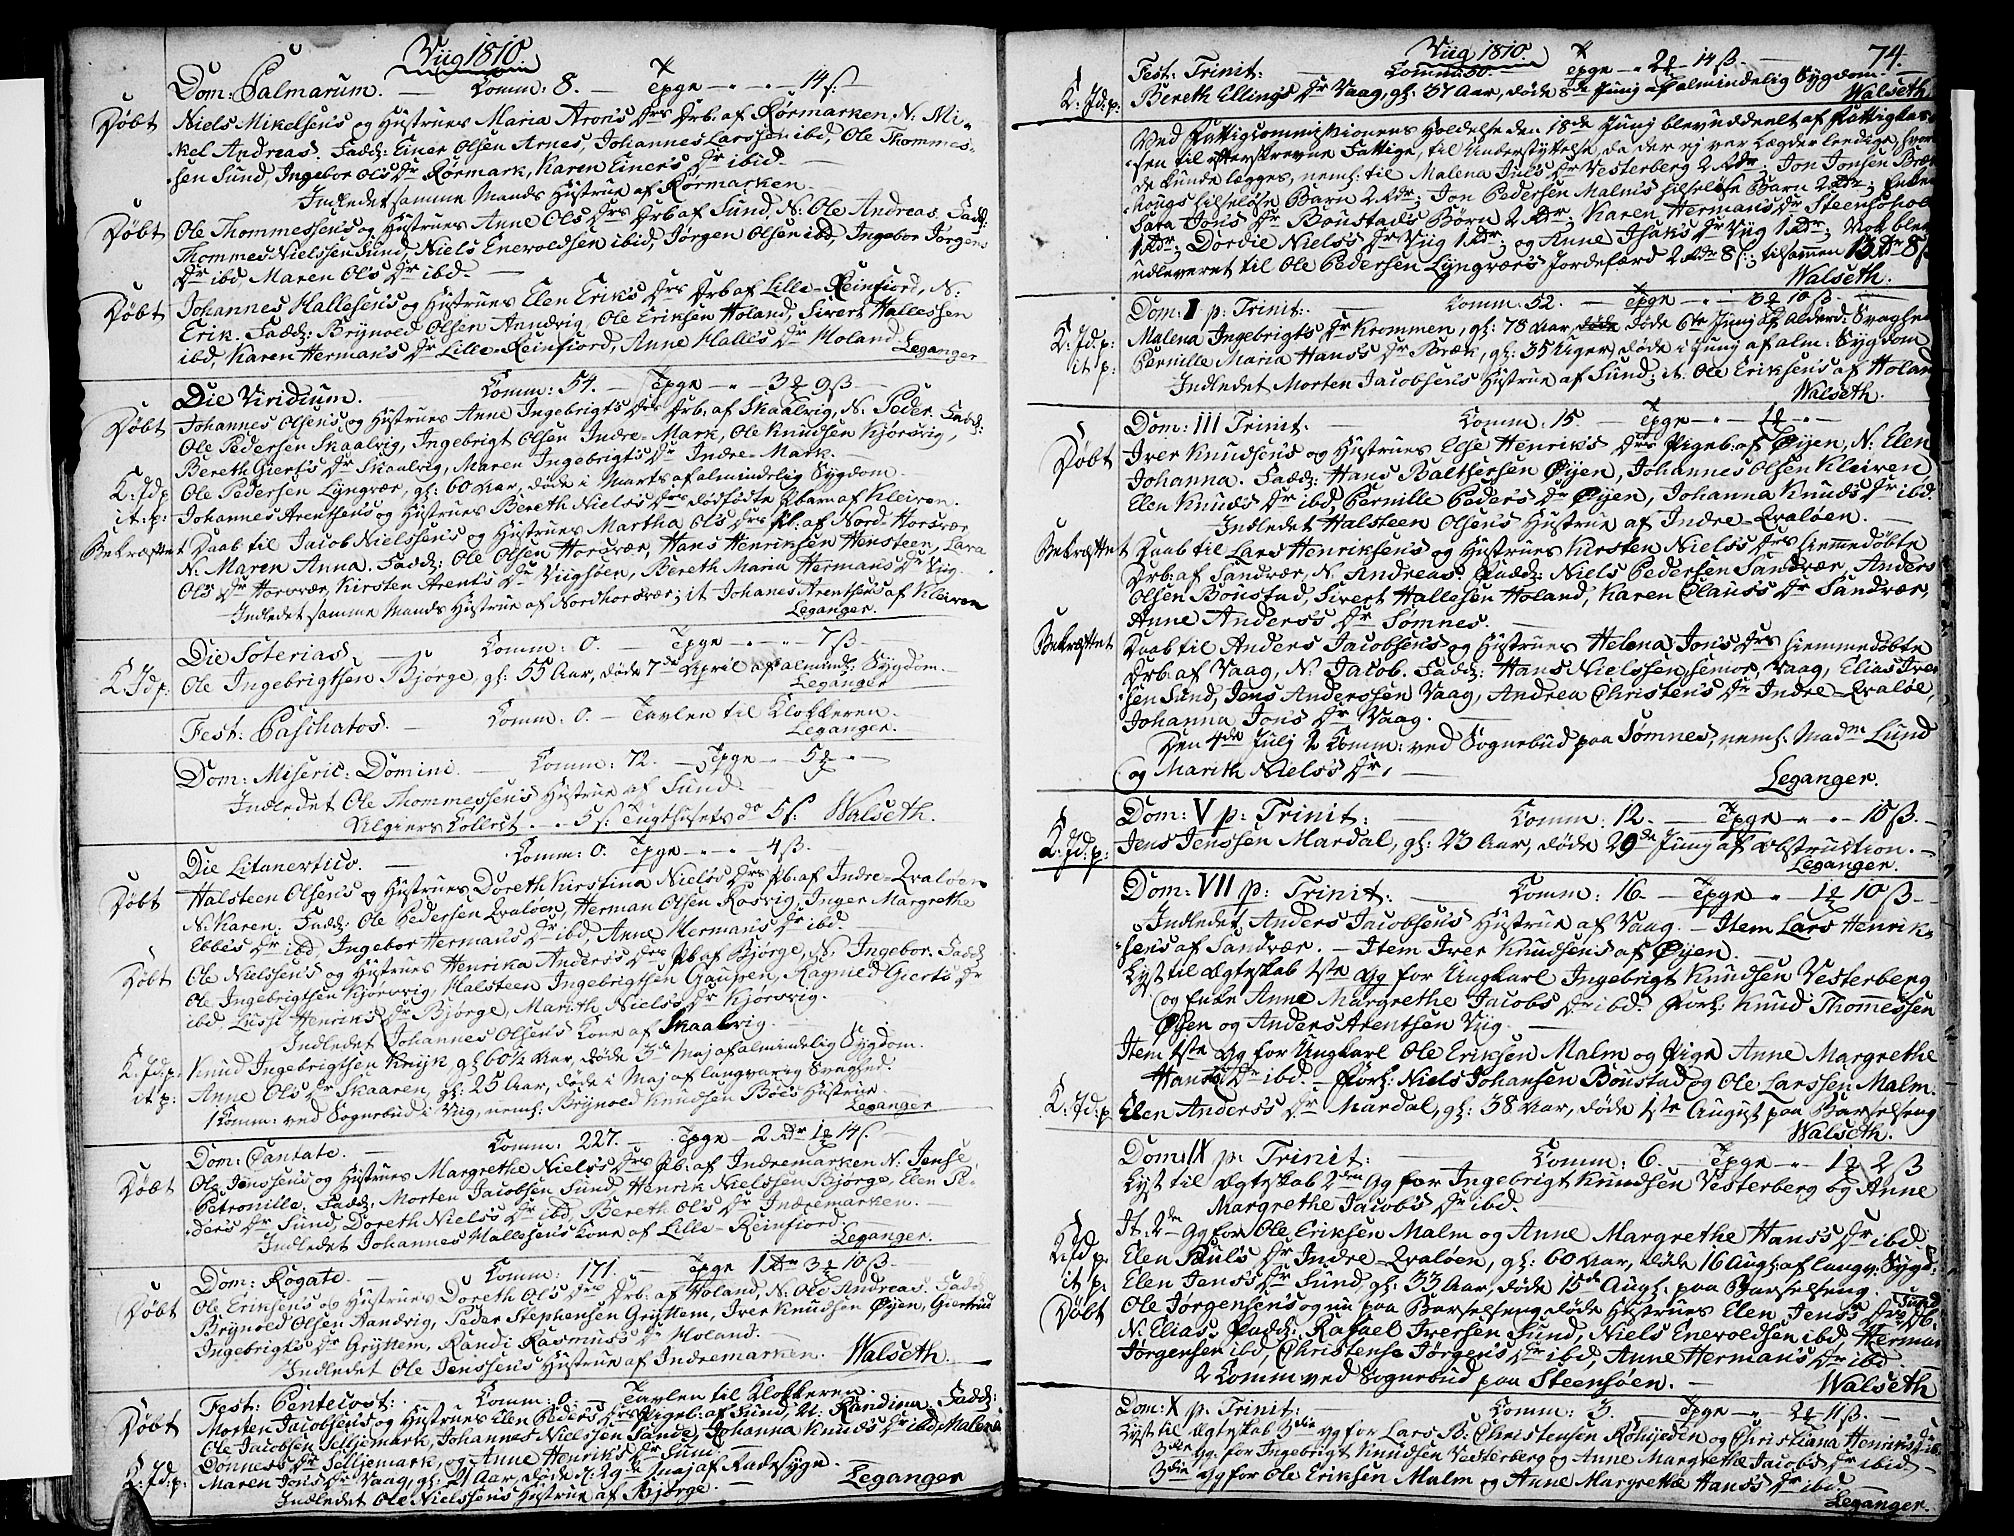 Viig 1810.
Dom: Palmarum. — Comm: 8. — Tpge - - 14 s:
Døbt Niels Mikelsens og Hustrues Maria Arons Drs Drb: af Rørmarken, N: Mi-
kel Andreas. Fadd: Einer Olsen Arnes, Johannes Larssen ibid, Ole Thommes-
sen Sund, Ingebor Ols Dr Rørmark, Karen Einers Dr ibid. —
Indledet samme Mands Hustrue af Rørmarken. —
Døbt Ole Thommessens og Hustrues Anne Ols Drs Drb: af Sund, N: Ole Andreas. Fadd:
Thommes Nielssen Sund, Niels Enevoldsen ibid, Jørgen Olsen ibd, Ingebor Jørgens
Dr ibd, Maren Ols Dr ibd. —
Døbt Johannes Hallesens og Hustrues Elen Eriks Drs Drb: af Lille-Reinfiord, N:
Erik. Fadd: Brynold Olsen Aandvig, Ole Eriksen Holand, Sivert Hallessen
ibid, Karen Hermans Dr Lille-Reinfiord, Anne Halles Dr Holand. Leganger
Die Viridium. Comm: 54. — Tpge - - 3 ½ 9 ß —
Døbt Johannes Olsens og Hustrues Anne Ingebrigts Drs Drb: af Skaalvig, N: Peder. Fadd:
Ole Pedersen Skaalvig, Ingebrigt Olsen Indre-Mark, Ole Knudsen Kjørsvig,
Bereth Gierts Dr Skaalvig, Maren Ingebrigts Dr Indre-Mark. —
K: Jd: p: Ole Pedersen Lyngvær, gl: 60 Aar, døde i Marts af almindelig Sygdom.
it: p: Johannes Arentsens og Hustrues Bereth Niels's Drs dødfødte Pbarn af Kleiven.
Bekræftet Daab til Jacob Nielssens og Hustrues Martha Ols Drs Pb: af Nord-Horsvær
N: Maren Anna. Fadd: Ole Olsen Horsvær, Hans Henriksen Hensteen, Lara
Ols Dr Horsvær, Kirsten Arents Dr Viigsøen, Bereth Maria Hermans Dr Viig.
Indledet samme Mands Hustrue af Nordhorsvær; it Johanes Arentsens af Kleiven
Leganger.
Die Soterias. — Comm: 0. — Tpge - - 7 ß —
K: Jd: p: Ole Ingebrigtsen Bjørge, gl: 55 Aar, døde 7de April af almind: Sygdom.
Leganger
Fest: Paschatos. — Comm: 0. — Tavlen til Klokkeren.
Leganger.
Dom: Miseric: Domini. — Comm: 72. — Tpge - 5 ½ - —
Indledet Ole Thommessens Hustrue af Sund.
Algiers Collect - - 5 s: Tugthusets do 5 s: Walseth.
Die Litanevtico. — Comm: 0. Tpge - - 4 ß.
Døbt Halsteen Olsens og Hustrues Doreth Kirstina Niels's Drs Pb: af Indre-Qvaløen
N: Karen. Fadd: Ole Pedersen Qvaløen, Herman Olsen Rosvig, Inger Margrethe
Ebbes Dr ibd, Ingebor Hermans Dr ibd, Anne Hermans Dr ibd.
Døbt Ole Nielssens og Hustrues Henrika Anders's Drs Pb: af Bjørge, N: Ingebor. Fadd
Ole Ingebrigtsen Kjørsvig, Halsteen Ingebrigtsen Gaupen, Ragnild Gierts Dr
ibd. Lussi Henriks Dr Bjørge, Marith Niels's Dr Kjørsvig.
Indledet Johannes Olsens Kone af Skaalvig. —
K: Jd: p: Knud Ingebrigtsen Kniyk gl 60½ Aar, døde 3de Maj af almindelig Sygdom.
it p: Anne Ols Dr Skaaren, gl: 25 Aar, døde i Maj af langvarig Svaghed.
1 Komm: ved Sognebud i Viig, neml: Brynold Knudsen Boes Hustrue.
Leganger
Dom: Cantate. — Comm: 227. — Tpge — 2 Rdr 1 ½ 14 s. —
Døbt Ole Jenssens og Hustrues Margrethe Niels's Drs Pb: af Indremarken N: Jense
Petronille. Fadd: Morten Jacobsen Sund, Henrik Nielssen Bjørge, Elen Pe-
ders Dr Sund, Doreth Niels's Dr ibd, Bereth Ols Dr Indremarken. —
Indledet Johannes Hallesens Kone af Lille-Reinfiord. —
Leganger.
Dom: Rogate. — Comm: 171. — Tpge 1 Rdr 3 ½ 10 ß —
Døbt Ole Eriksens og Hustrues Doreth Ols Drs Drb: af Holand, N: Ole Andreas. Fadd:
Brynold Olsen Aandvig, Peder Stephensen Gryttem, Iver Knudsen Øyen, Giertrud
Ingebrigts Dr Gryttem, Randi Rasmus's Dr Holand. —
Indledet Ole Jenssens Hustrue af Indremarken. Walseth.
Fest: Pentecost: Comm: 0. — Tavlen til Klokkeren.
Døbt Morten Jacobsens og Hustrues Elen Peders Drs Pigeb: af Sund, N: Randina. Fadd:
Ole Jacobsen Silljemark, Johannes Nielssen Sande, Johanna Knuds Dr ibd, Malene
Dønnes's Dr Silljemark, og Anne Henriks Dr Sund. —
K: Jd: p: Maren Jons Dr Vaag, gl: 21 Aar, døde d. 29de Maj af Radesyge.
Indledet Ole Nielssens Hustrue af Bjørge. — Leganger
Viig 1810. 74.
Fest: Trinit: — Comm: 50. — Tpge - - 2 ½ 14 ß —
K: Jd: p: Bereth Ellings Dr Vaag, gl: 37 Aar, døde 8de Junij af almindelig Sygdom. —
Walseth.
Ved Fattigcommissionens Holdelse den 18de Junij blev uddeelt af Fattigkas-
sen til efterskrevne Fattige, til Understyttelse, da der ej var Lægder ledige, hvor
de kunde lægges, neml: til Malena Juls Dr Vesterberg 2 Rdr, Jon Jonsen Bræk
Kongs fisseløse Barn 2 Rdr; Jon Pedersen Malms fisseløse Barn 2 Rdr; Enken
Sara Jons Dr Boustads Børn 2 Rdr; Karen Hermans Dr Steensøhol
1 Rdr; Dordie Niels's Dr Viig 1 Rdr; og Anne Isaks Dr Viig 1 Rdr; Nok blev
udleveret til Ole Pedersen Lyngvæs Jordefærd 2 Rdr 8 s:; tilsamen 13 Rdr 8 s
Walseth.
Dom: I p: Trinit: — Comm: 52. — Tpge - - 3 ½ 10 ß —
K: Jd: p: Malena Ingebrigts Dr Krommen, gl: 78 Aar, døde 6te Junij af Alderd: Svaghed
it p: Pernille Maria Hans's Dr Bræk, gl: 35 Uger, døde i Junij af alm: Sygdom
Indledet Morten Jacobsens Hustrue af Sund; it. Ole Eriksens af Holand
Walseth.
Dom: III Trinit. — Comm: 15. — Tpge - - 1 ½ - -
Døbt Iver Knudsens og Hustrues Else Henriks Drs Pigeb: af Øijen, N: Elen
Johanna. Fadd: Hans Balthersen Øijen, Johannes Olsen Kleiven
Elen Knuds Dr ibd, Pernille Peders Dr Øijen, Johanna Knuds Dr ibd.
Indledet Halsteen Olsens Hustrue af Indre-Qvaløen. —
Bekræftet Daab til Lars Henriksens og Hustrues Kirsten Niels's Drs hiemmedøbte
Drb: af Sandvær, N. Andreas. Fadd: Niels Pedersen Sandvær, Anders
Olsen Boustad, Sivert Hallesen Holand, Karen Claus's Dr Sandvær,
Anne Anders's Dr Sømnes. —
Bekræftet Daab til Anders Jacobsens og Hustrues Helena Jons Drs hiemmedøbte
Drb: af Vaag, N: Jacob. Fadd: Hans Nielssen senior Vaag, Elias Iver-
sen Sund, Jens Anderssen Vaag, Andrea Christens Dr Indre-Qvaløe,
Johanna Jons Dr Vaag. —
Den 4de Julj 2 Komm: ved Sognebud paa Sømnes, neml: Madm Lund
og Marith Niels's Dr. —
Leganger.
Dom: V p: Trinit: — Comm: 12. — Tpge - - 15 ß. —
K: Jd: p: Jens Jenssen Mardal, gl: 23 Aar, døde 29de Junij af Obstruction. —
Leganger.
Dom: VII p: Trinit: — Comm: 16. — Tpge - 1 ½ 10 ß —
Indledet Anders Jacobsens Hustrue af Vaag. — Item Lars Henrik-
sens af Sandvær. — Item Iver Knudsens af Øijen. —
Lyst til Ægteskab 1ste Gg for Ungkarl Ingebrigt Knudsen Vesterberg
og Enke Anne Margrethe Jacobs Dr ibd. Forl: Knud Thommessen
Øijen og Anders Arentsen Viig. —
Item 1ste Gg for Ungkarl Ole Eriksen Malm og Pige Anne Margrethe
Hans's Dr ibd. — Forl: Niels Johansen Boustad og Ole Larssen Malm.
K: Jd: p Elen Anders's Dr Mardal, gl: 38 Aar, døde 1ste August paa Barselseng
Walseth.
Dom: IX p: Trinit: — Comm: 6. — Tpge - - 1 ½ 2 ß
Lyst til Ægteskab 2den Gg for Ingebrigt Knudsen Vesterberg og Anne
Margrethe Jacobs Dr ibd. —
It: 2den Gg for Ole Eriksen Malm og Anne Margrethe Hans's Dr ibd
K: Jd p: Elen Pauls Dr Indre-Qvaløen, gl: 60 Aar, døde 16 Augs: af langv: Sygd:
it p: Elen Jens's Dr Sund, gl: 33 Aar, døde 15de Augs: paa Barselseng.
Døbt Ole Jørgensens og nu paa Barselseng døde Hustrues Elen Jens's Drs Db: Sund
N: Elias. Fadd: Rafael Iversen Sund, Niels Enevoldsen ibd, Herman
Jørgensen ibd, Christense Jørgens Dr ibd, Anne Hermans Dr ibd
2 Komm ved Sognebud paa Steensøen. — Walseth
Dom: X p: Trinit: — Comm: 3. — Tpge - 2 ½ 11 ß. —
Lyst til Ægteskab 3die Gg for Lars B: Christensen Røhijeden og Christiana Henriks Dr ib:
3die Gg. for Ingebrigt Knudsen Vesterberg og Anne Margrethe Jacobs Dr ibid —
3die Gg for Ole Eriksen Malm og Anne Margrethe Hans's Dr ibd
Leganger.